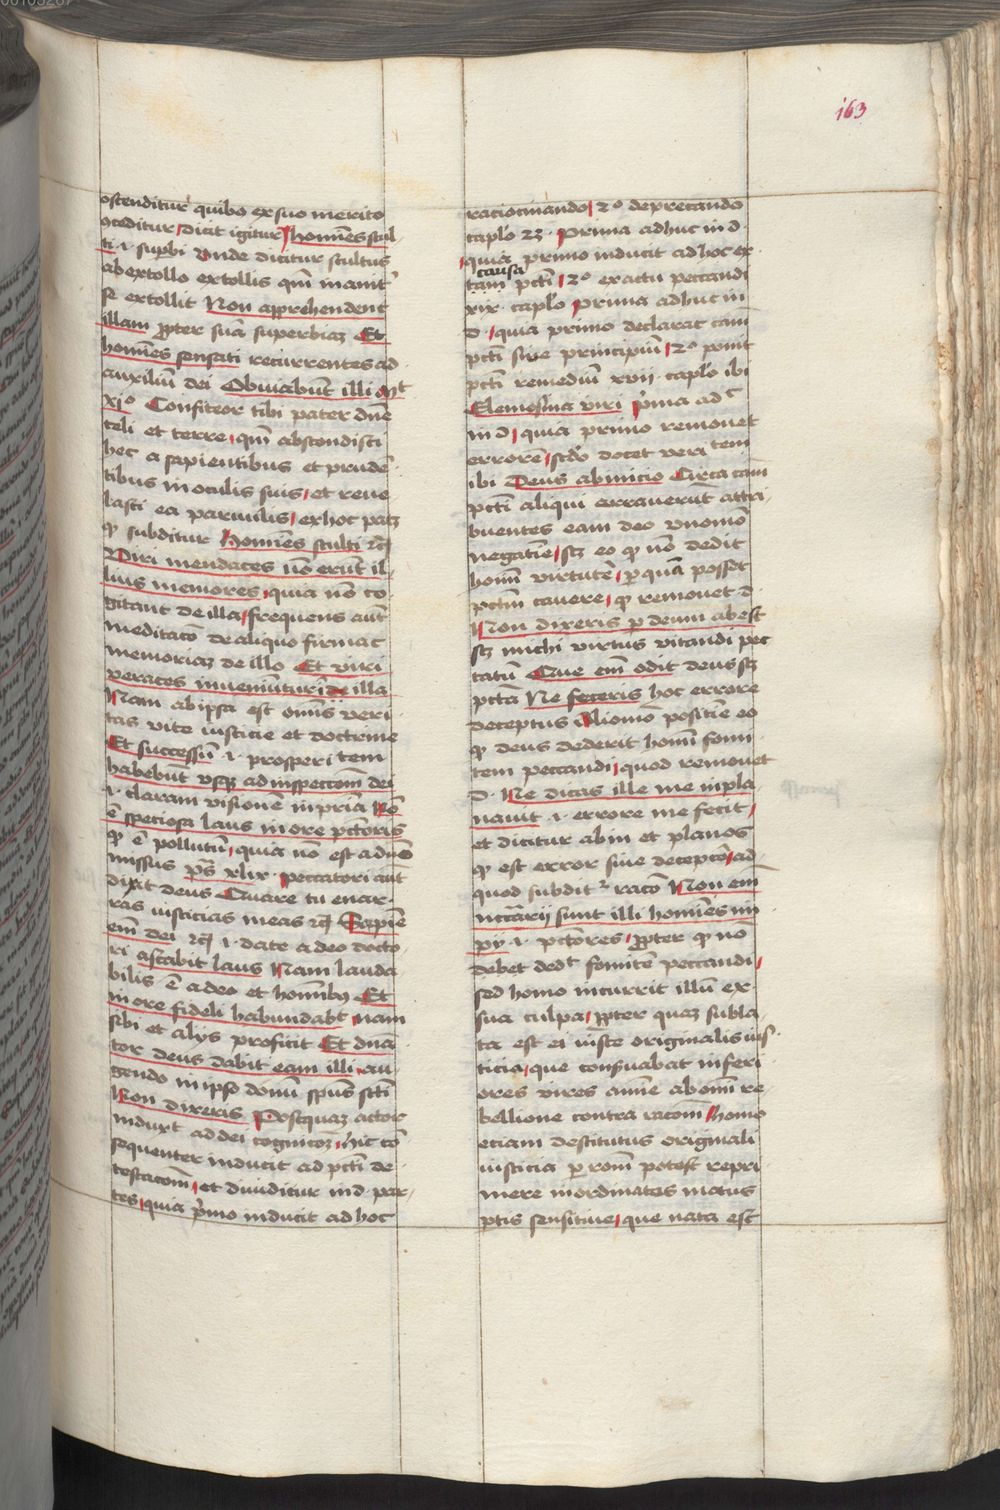 163
ostenditur quibꝰ ex suo merito
ꝯceditur / dicit igitur / homīes stul
ti .i. supbi Unde dicitur stultus
ab extollo extollis qm̄ inanit᷑
se extollit Non apprehendent
illam ꝓpter suā superbiaꝫ Et
homīes sensati recurrentes ad
auxiliū dei Obuiabūt illi Mᵗ
xiº Confiteor tibi pater dn̄e
celi et terre / qm̄ abscondisti
hec a sapientibus et prudē
tibus in oculis suis / et reue
lasti ea paruulis / ex hoc patꝫ
ꝙ subditur homīes stulti ⁊cꝭ
Viri mendaces nō erūt il
lius memores / quia nō co
gitant de illa / frequens aūt
meditacō de aliquo firmat
memoriaꝫ de illo Et viri
veraces inueniūtur ī de illa
Nam ab ipsa est omīs veri
tas vite iusticie et doctrine
Et successū .i. prosperitatem
habebūt vsqꝫ ad inspectionē dei
.i. claram visionē in pr̄ia Nō
ē speciosa laus in ore pctōris
ꝙ ē pollutū / quia nō est a dn̄o
missus ps̄ xlix peccatori aūt
dixit deus Quare tu enar
ras iusticias meas ⁊cꝭ Sapiē
em̄ dei ⁊cꝭ .i. date a deo docto
ri astabit laus Nam lauda
bilis ē a deo et hoīnibꝰ Et
in ore fideli habundabt nam
sibi et alijs proficit Et dn̄a
tor deus dabit eam illi / au
gendo in ipso donū spūs scti
Non dixeris Postquaꝫ actor
induxt ad dei cognicoꝫ / hic cō
sequenter inducit ad pcti de
testacōnē / et diuiditur in d. par
tes / quia prīmo inducit ad hoc
raciocinando / 2º deprecando
caplō 23 . Prima adhuc in d
/ quia primo inducit ad hoc ex
causa
tam pcti / 2º ex actu peccandi
xix caplō Prima adhuc in
d / quia primo declarat cām
pcti siue principiū / 2º ponit
pcti remediū xvii caplō ibi
Elemosīna viri prīma adᶜ
in d / quia primo remouet
errorē / scdō docet veritatem
ibi Deus ab inicio Circa cām
pcti aliqui errauerūt attri
buentes eam deo vnomō
negatiē / scꝫ eo ꝙ nō dedit
homī virtutē / ꝑ quā possꝫ
pctm̄ cauere / ꝙ remouet d.
Non dixeris ꝑ deum abest
scꝫ michi virtus vitandi pec
catū Que em̄ odit deus scꝫ
pctā Ne feceris hoc errore
deceptus Aliomō positiē eo
ꝙ deus dederit homī fomi
tem peccandi / quod remouet
d. Ne dicas ille me inpla
nauit .i. errore me fecit /
et dicitur ab in et planos
ꝙ est error siue decepcō / ad
quod subdit᷑ racō Non em̄
nccārij sunt illi homīes im
pij .i. pctōres / ꝓpter ꝙ nō
debet dedᵗ fomitē peccandi /
sed homo incurrit illū ex
sua culpa / ꝓpter quaꝫ subla
ta est ei iuste originalis ius
ticia / que conseruabat inferi
ores vires anime ab omī re
bellione contra racōm / homo
eciam destitutus originali
iusticia ꝑ rōm potest repri
mere inordinatos motus
ꝑtis sensitiue / que nata est